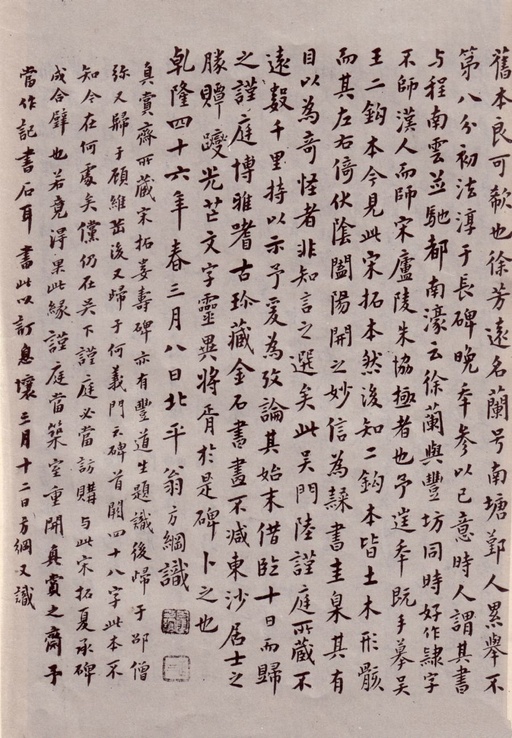 舊本良可欷也徐芳遠名蘭号南塘鄞人累舉不
第八分初法淳于長碑晚年參以己意時人謂其書
与程南雲並馳都南濠云徐蘭與豐坊同時好作隸字
不師漢人而師宋廬陵朱協極者也予往年既手摹吴
王二鈎本今見此宋拓本然後知二鈎本皆土木形骸
而其左右倚伏陰闔陽開之妙信為隸書圭臬其有
目以為奇怪者非知言之選矣此吴門陸謹庭所藏不
遠數千里持以示予爰為攷論其始末借臨十日而歸
之謹庭博雅嗜古珍藏金石書畫不減東沙居士之
賸贉躞光芒文字靈異將胥於是碑卜之也
乾隆四十六年春三月八日北平翁方綱識
真賞齋所藏宋拓婁壽碑亦有豐道生題識後歸于邵僧
弥又歸于顧維岳後又歸于何義門云碑首闕四十八字此本不
知今在何處矣儻仍在吴下謹庭必當訪購与此宋拓夏承碑
成合璧也若竟得果此緣謹庭當築室重開真賞之齋予
當作記書石耳書此以訂息壤三月十二日方綱又識